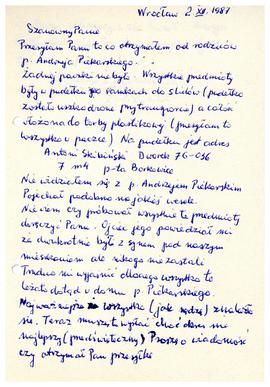 Wrocław 2 XII. 1987
Szanowny Panie
Przesyłam Panu to co otrzymałem od rodziców
p. Andrzeja Piekarskiego.
Żadnej paczki nie było. Wszystkie przedmioty
były w pudełku po ramkach do slidów (pudełko
zostało uszkodzone przy transporcie) a całość
włożona do torby plastikowej (przesyłam to
wszystko w paczce) Na pudełku jest adres
Antoni Skibiński Dworek 76-036
7 m 4 p-ta Borkowice
Nie widziałem się z p. Andrzejem Piekarskim
Pojechał podobno na jakieś wesele.
Nie wiem czy próbował wszystkie te przedmioty
doręczyć Panu. Ojciec jego powiedział mi
że dwukrotnie był z synem pod naszym
mieszkaniem ale nikogo nie zastali
Trudno mi wyjaśnić dlaczego wszystko to
leżało dotąd u domu p. Piekarskiego.
Najważniejsze że wszystko (jak sądzę) znalazło
się. Teraz muszę to wysłać choć okres nie
najlepszy (przedświąteczny) Proszę o wiadomość
czy otrzymał Pan przesyłkę